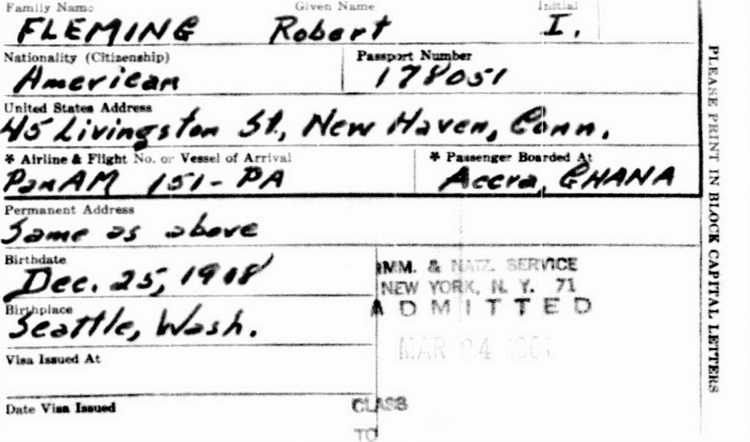 Family Name Given Name Initial
FLEMING Robert I.
Nationality (Citizenship) Passport Number
American 178051
United States Address
45 Livingston St., New Haven, Conn.
* Airline & Flight No. or Vessel of Arrival * Passenger Boarded At
PanAM 151-PA Accra, GHANA
Permanent Address
Same as above
Birthdate
Dec. 25, 1908
IMM. & NATZ. SERVICE
NEW YORK, N. Y. 71
ADMITTED
MAR 24
Birthplace
Seattle, Wash.
Visa Issued At
Date Visa Issued
CLASS
TO
PLEASE PRINT IN BLOCK CAPITAL LETTERS